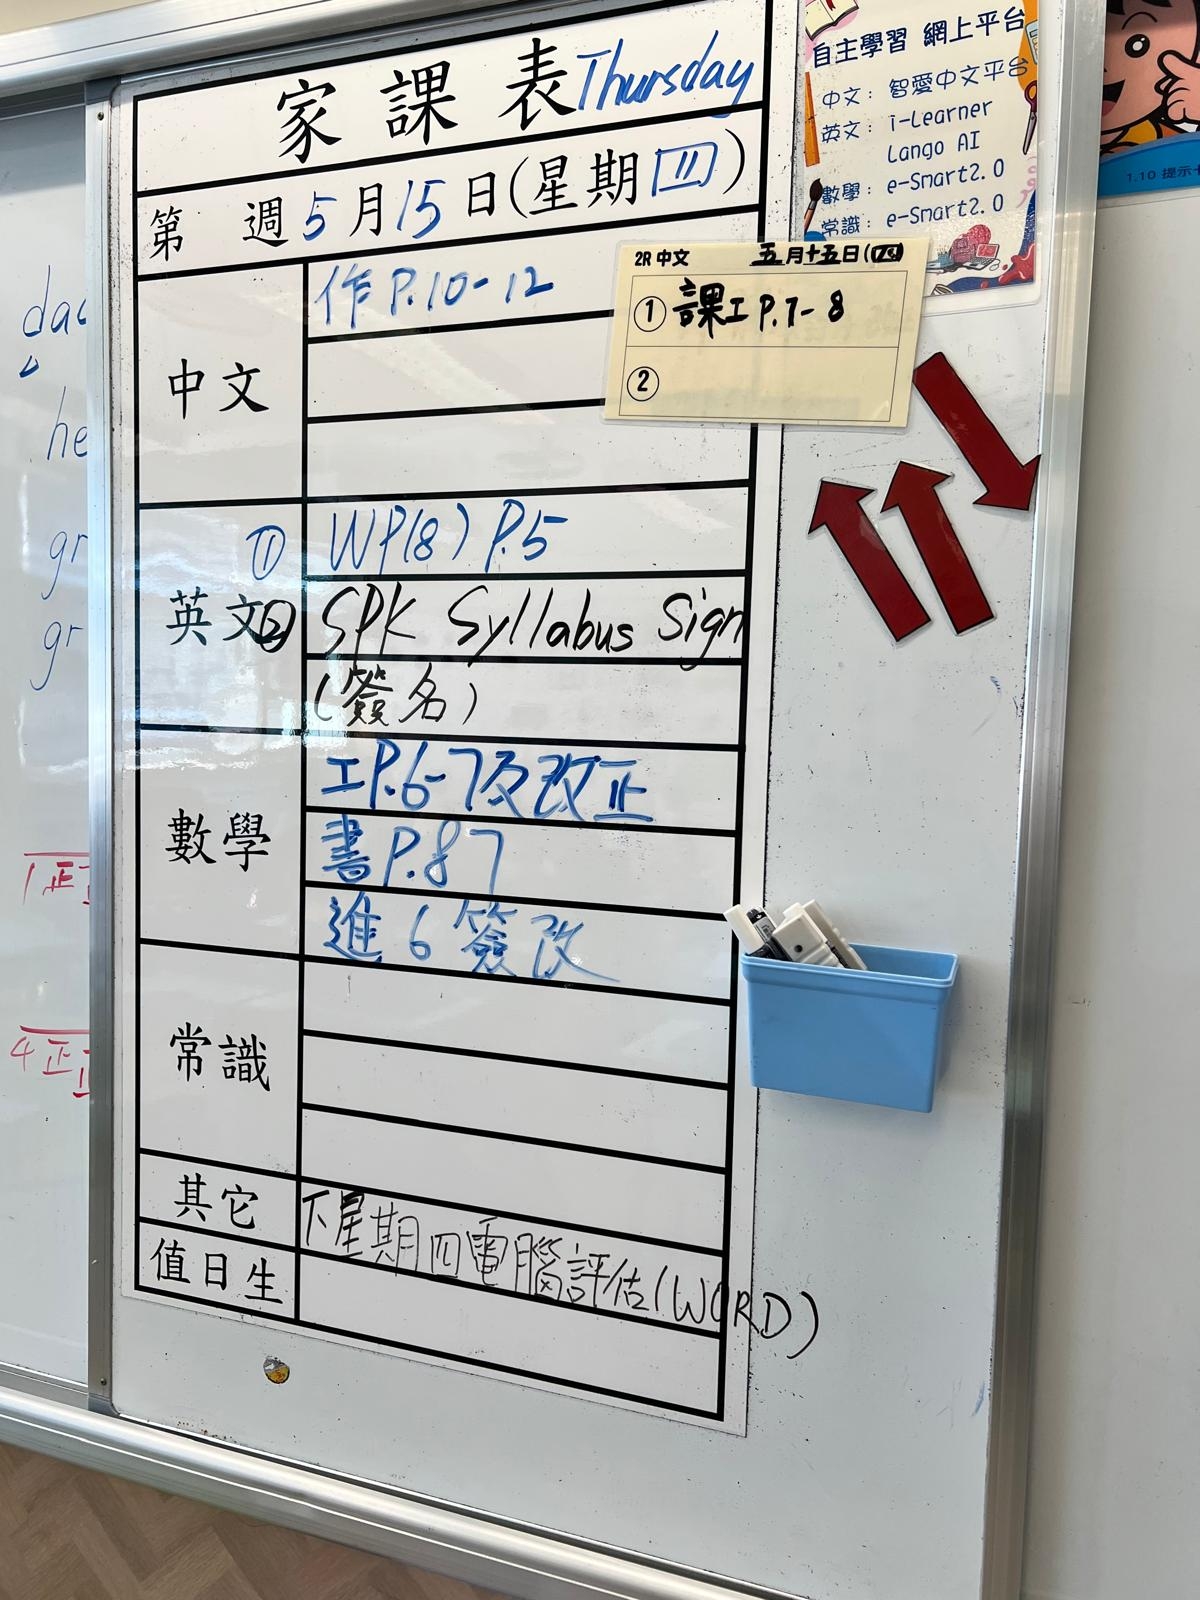 家課表 Thursday
第 週 5月15日(星期四)
中文
作 P.10-12
2R 中文 五月十五日(四)
① 課工 P.7-8
②
英文
① WP(8) P.5
② SPK Syllabus Sign
(簽名)
數學
工P.6-7及改正
書P.87
進6簽改
常識
其它
下星期四電腦評估(WORD)
值日生
自主學習 網上平台
中文: 智愛中文平台
英文: i-Learner
Lango AI
數學: e-Smart2.0
常識: e-Smart2.0
1.10 提示
he
gr
gr
1正
4正